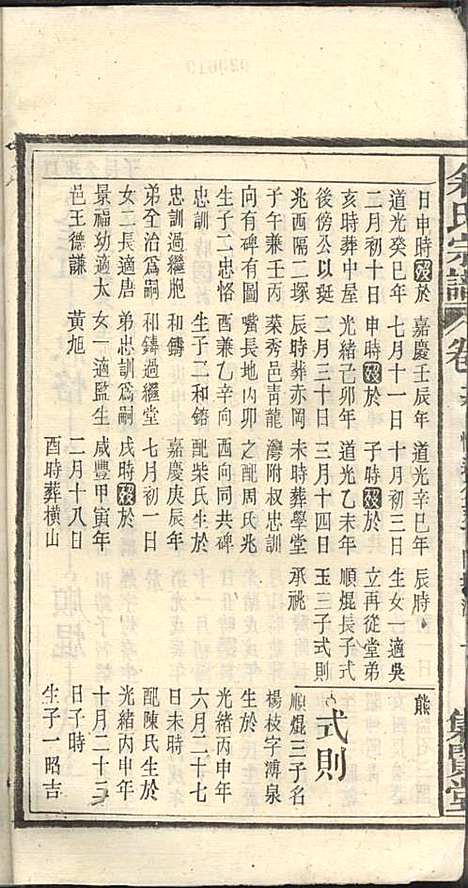 余氏宗譜
卷
集賢堂
日申時歿於
道光癸巳年
二月初十日
亥時葬中屋
後傍公以珽
兆西隔二塚
子午兼壬丙
向有碑有圖
生子二忠恪
忠訓
忠訓過繼胞
弟全治爲嗣
女二長適唐
景福幼適太
邑王德謙
嘉慶壬辰年
七月十一日
申時歿於
光緒己卯年
三月三十日
辰時葬赤岡
榮秀邑青龍
嘴長地內卯
酉兼乙辛向
生子二和鎔
和鑄
和鑄過繼堂
弟忠訓爲嗣
女一適監生
黃旭
道光辛巳年
十月初三日
子時歿於
道光乙未年
三月十四日
未時葬學堂
灣附叔忠訓
之配周氏兆
西向同共碑
配柴氏生於
嘉慶庚辰年
七月初一日
戌時歿於
咸豐甲寅年
二月十八日
酉時葬橫山
辰時
生女一適吳
立再從堂弟
順焜長子式
玉三子式則
承祧
熊
式則
順焜三子名
楊枝字溥泉
生於
光緒丙申年
六月二十七
日未時
配陳氏生於
光緒丙申年
十月二十三
日子時
生子一昭吉